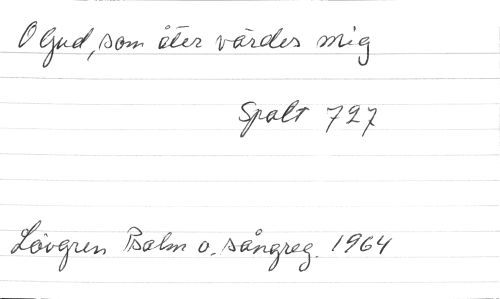 O Gud, som åter vårdes mig
Spalt 727
Lövgren Psalm o. sångreg. 1964